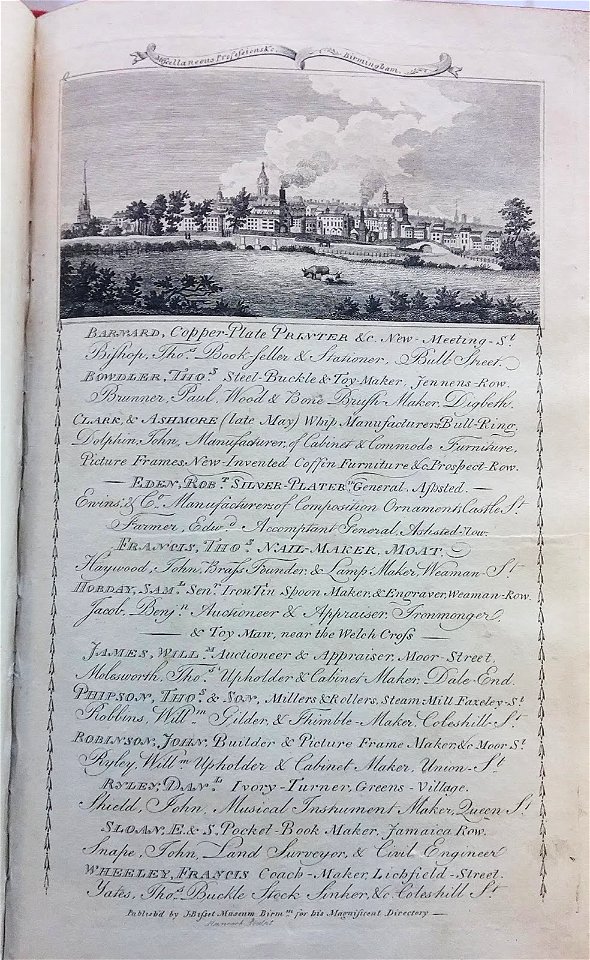 Miscellaneous Professions &c. Birmingham.
BARNARD, Copper-Plate PRINTER &c. New-Meeting-St
Bishop, Thos. Book-seller & Stationer, Bull Street.
BOWDLER, THOS. Steel-Buckle & Toy-Maker, Jennens-Row.
Brunner, Paul, Wood & Bone Brush-Maker, Digbeth.
CLARK, & ASHMORE (late May) Whip Manufacturers Bull-Ring
Dolphin, John, Manufacturer, of Cabinet & Commode Furniture,
Picture Frames, New-Invented Coffin Furniture &c Prospect-Row.
EDEN, ROBT. SILVER-PLATER, General, Ashsted.
Ewins, & Co. Manufacturers of Composition Ornaments, Castle St
Farmer, Edwd. Accomptant General, Ashsted-Row.
FRANCIS, THOS. NAIL-MAKER, MOAT.
Haywood, John, Brass Founder, & Lamp Maker, Weaman-St
HOBDAY, SAML. Senr. Iron Tin Spoon Maker, & Engraver, Weaman-Row.
Jacob, Benjn. Auctioneer & Appraiser, Ironmonger,
& Toy Man, near the Welch Cross
JAMES, WILLM. Auctioneer & Appraiser, Moor-Street,
Molesworth, Thos. Upholder & Cabinet Maker, Dale-End.
PHIPSON, THOS. & SON, Millers & Rollers, Steam-Mill Fazeley-St
Robbins, Willm. Gilder, & Thimble-Maker, Coleshill-St
ROBINSON, JOHN, Builder & Picture Frame Maker, &c Moor St
Ryley, Willm. Upholder & Cabinet Maker, Union-St
RYLEY, DANL. Ivory-Turner, Greens-Village.
Shield, John, Musical Instrument Maker, Queen St
SLOAN, E. & S. Pocket-Book Maker, Jamaica Row.
Snape, John, Land Surveyor, & Civil Engineer
WHEELEY, FRANCIS Coach-Maker, Lichfield-Street.
Yates, Thos. Buckle Stock Sinker, &c. Coleshill St
Publish'd by J. Bisset Museum Birmm. for his Magnificent Directory
Hancock Sculpt